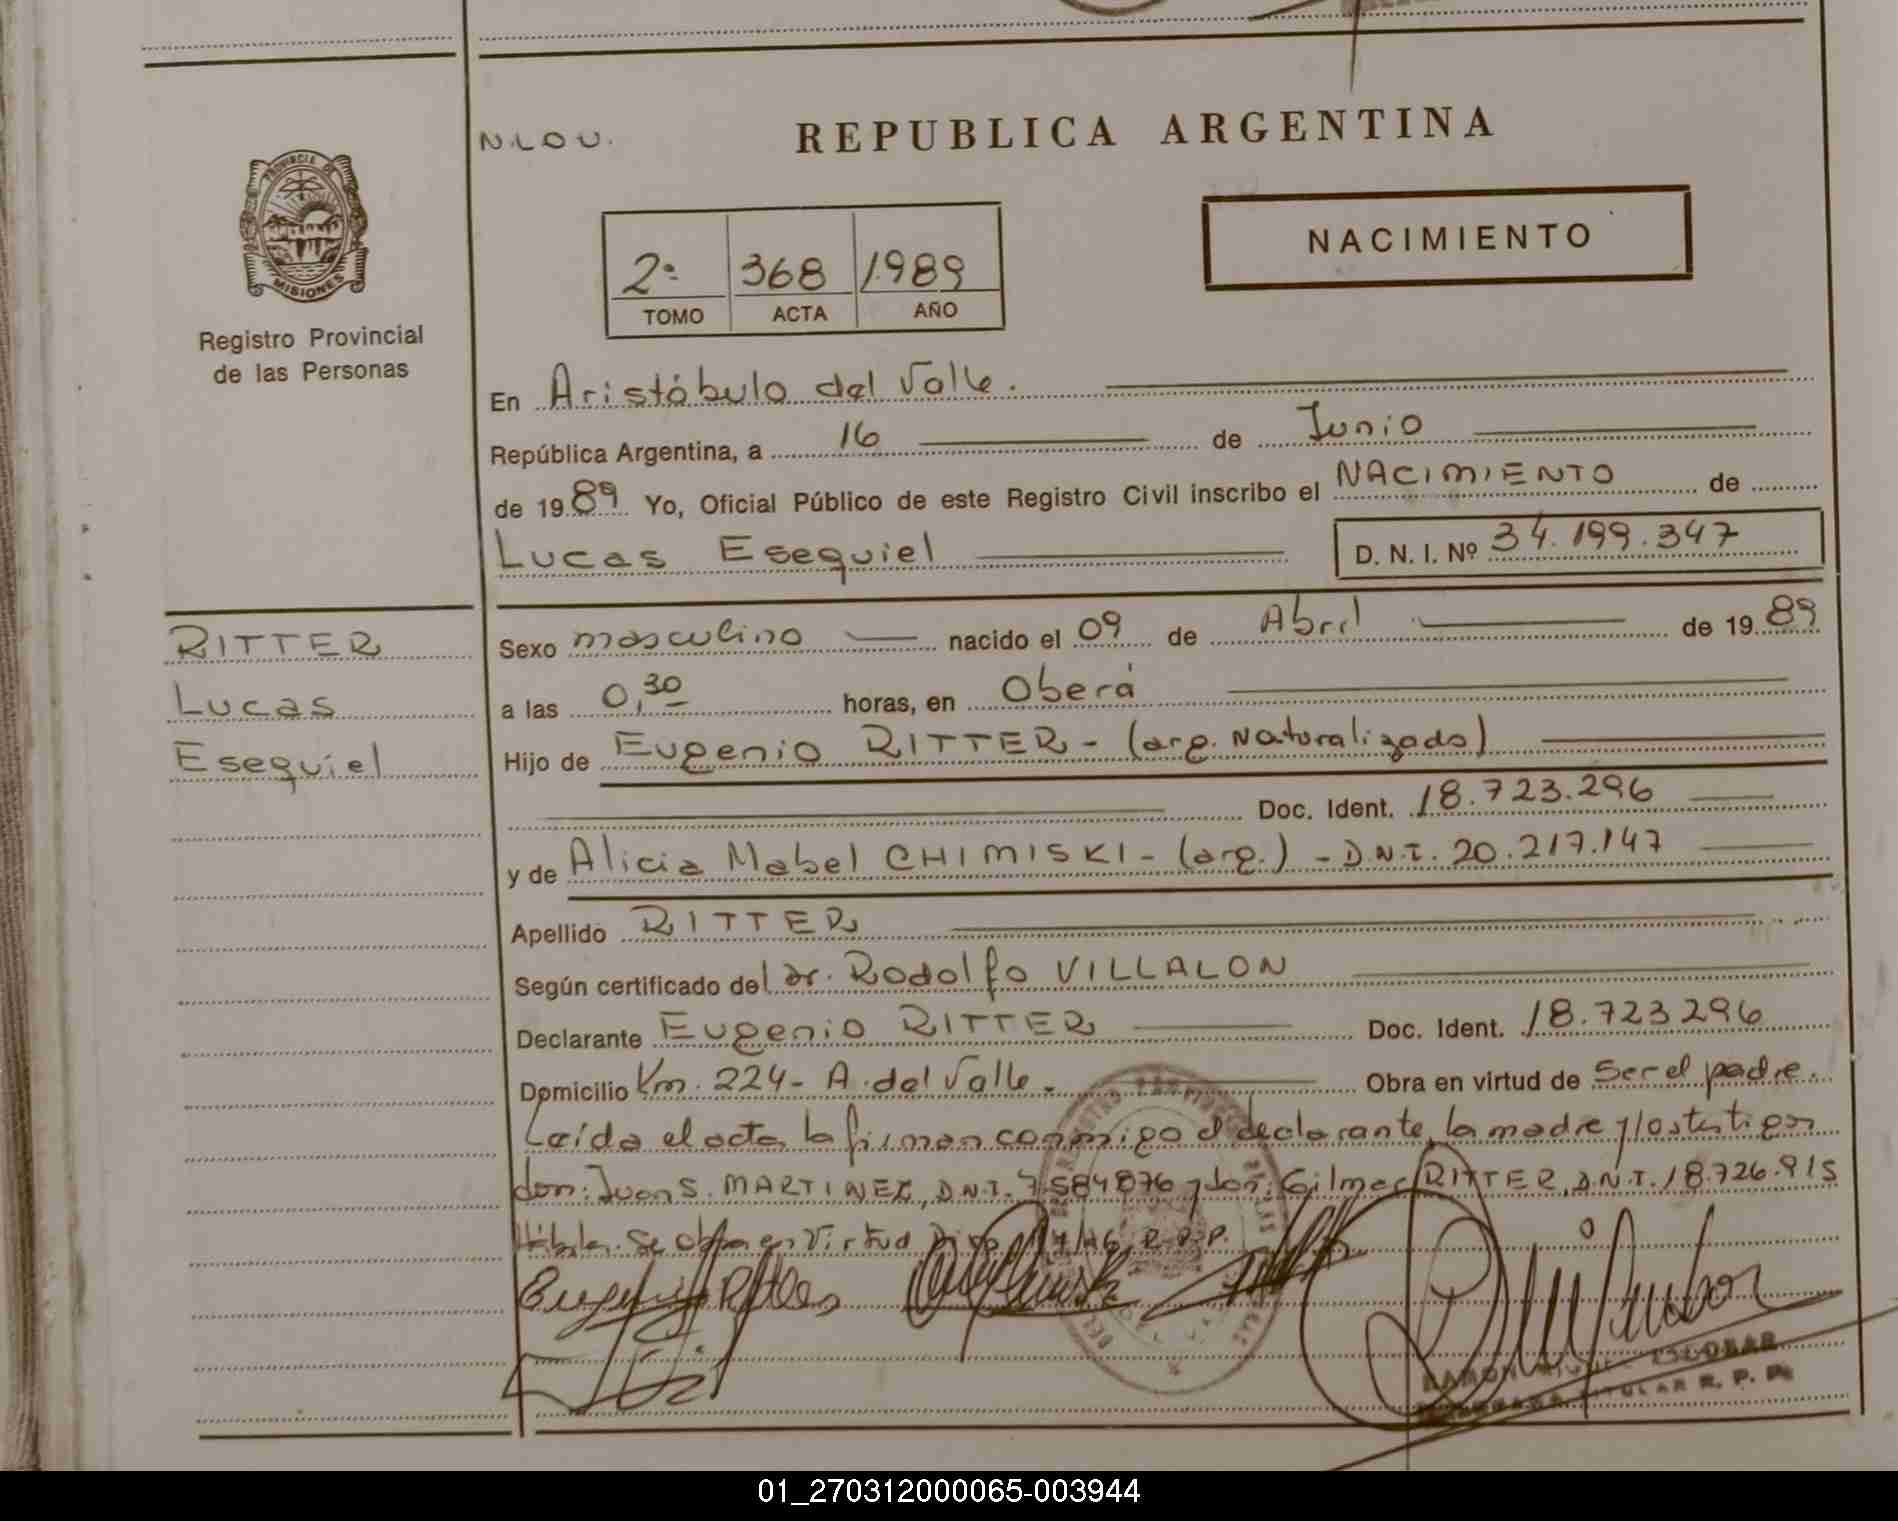 REPUBLICA ARGENTINA
N.L.O.U.
PROVINCIA DE
MISIONES
Registro Provincial
de las Personas
2º 368 1989
TOMO ACTA AÑO
NACIMIENTO
En Aristóbulo del Valle.
República Argentina, a 16 de Junio
de 1989 Yo, Oficial Público de este Registro Civil inscribo el NACIMIENTO de
Lucas Esequiel D. N. I. Nº 34.199.347
RITTER
Lucas
Esequiel
Sexo masculino nacido el 09 de Abril de 1989
a las 0,30 horas, en Oberá
Hijo de Eugenio RITTER - (arg. Naturalizado)
Doc. Ident. 18.723.296
y de Alicia Mabel CHIMISKI - (arg.) - D.N.I. 20.217.147
Apellido RITTER
Según certificado del dr. Rodolfo VILLALON
Declarante Eugenio RITTER Doc. Ident. 18.723296
Domicilio Km. 224- A. del Valle. Obra en virtud de Ser el padre.
Leída el acta, la firman conmigo el declarante, la madre y los testigos
don: Juan S. MARTINEZ, D.N.I. 7.584876 y don: Gilmar RITTER, D.N.I. 18.726.915
Hábiles. Se obra en Virtud R.P.P.
ESCOBAR
TITULAR R. P. P.
01_270312000065-003944